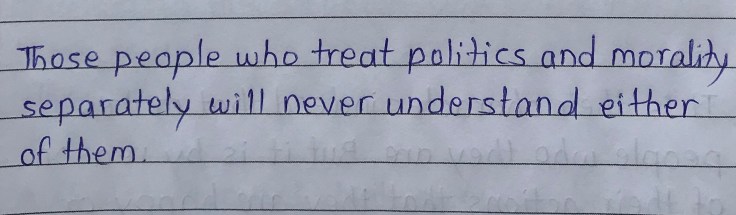 Those people who treat politics and morality
separately will never understand either
of them.